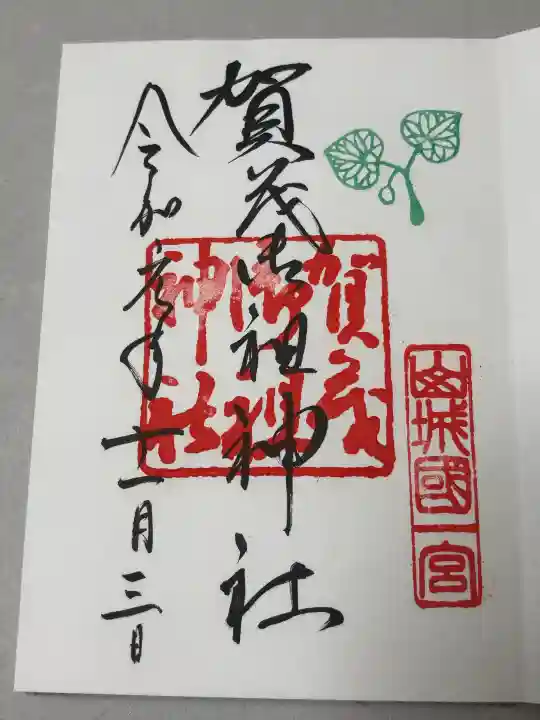 山城國一宮
賀茂御祖神社
賀茂
御祖
神社
令和元年十一月三日